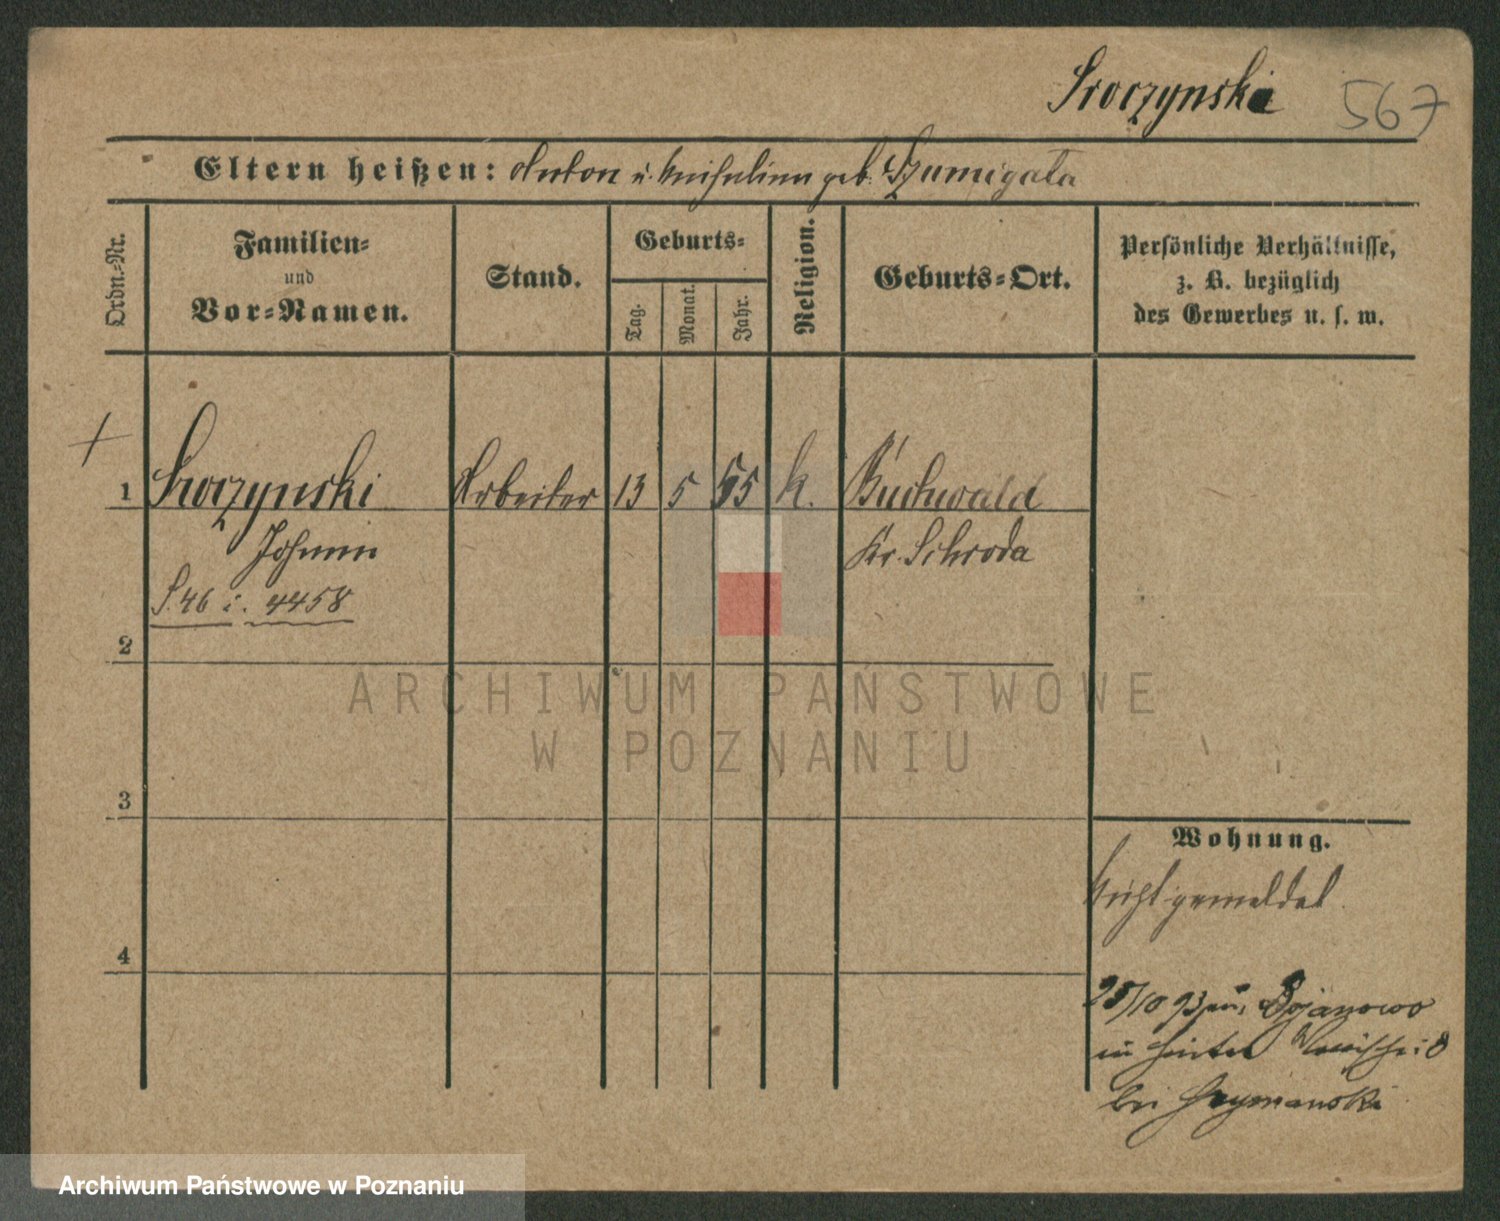 Sroczynski 567
Eltern heißen: Anton u. geb. Szumigala
Ordn.-Nr.
Familien-
und
Vor-Namen.
Stand.
Geburts-
Tag.
Monat.
Jahr.
Religion.
Geburts-Ort.
Persönliche Verhältnisse,
z. B. bezüglich
des Gewerbes u. s. w.
1 Sroczynski Arbeiter 13 5 55 k. Buchwald
Johann Kr. Schroda
S. 46 i. 4458
2
ARCHIWUM PAŃSTWOWE
W POZNANIU
3
Wohnung.
Nicht gemeldet.
4
25/10 93 Bojanowo
in hinter
bei Szymanski
Archiwum Państwowe w Poznaniu